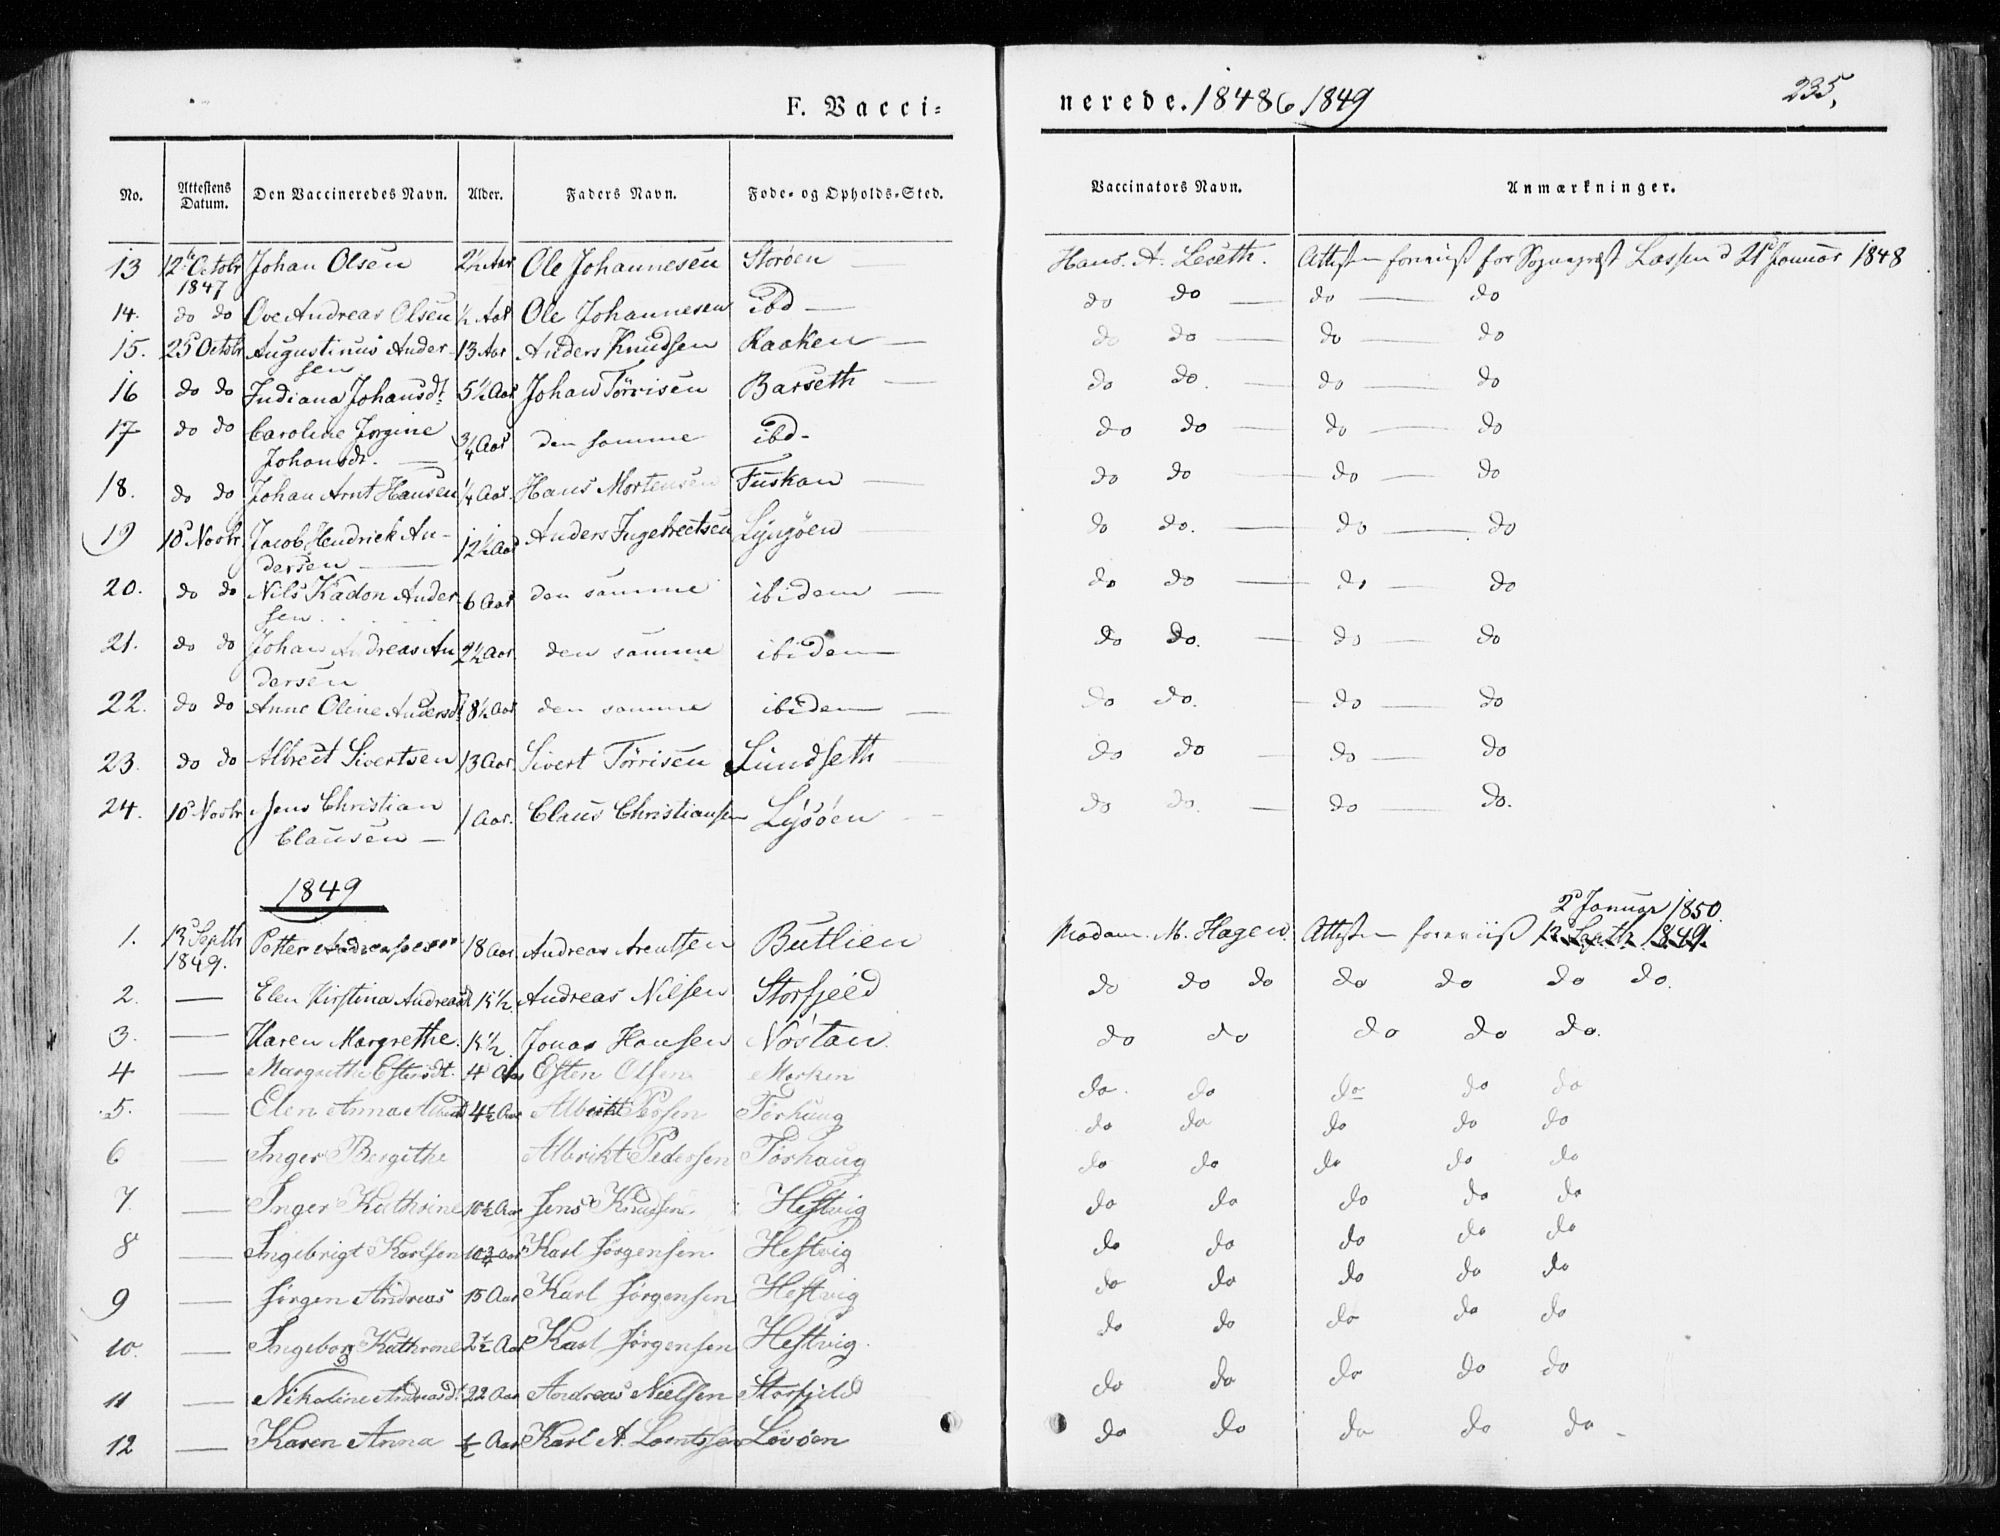 F. Vacci=
nerede. 1848 & 1849
235,
No. Attestens Datum. Den Vaccineredes Navn. Alder. Faders Navn. Føde- og Opholds-Sted. Vaccinators Navn. Anmærkninger.
13 12te Octobr 1847 Johan Olsen 2½ Aar Ole Johannesen Storøen — Hans. A. Leseth. Attesten foreviist for Sognepræst Lassen d 21 Januar 1848
14. do do Ove Andreas Olsen ½ Aar Ole Johannesen ibd — do do — do — do
15. 25 Octobr Augustinus Andersen 13 Aar Anders Knudsen Raaken — do do — do — do
16 do do Indiana Johansdt. 5½ Aar Johan Tørrisen Barseth — do do. — do — do
17 do do Caroline Jørgine Johansdr. — ¾ Aar den samme ibd- do do — do — do
18. do do Johan Arnt Hansen ¼ Aar. Hans Mortensen Fuskan — do do — do — do
19 10 Novbr. Jacob Hendrick Andersen — 12½ Aar Anders Ingebrectsen Lyngøen — do do. — do — do
20. do do Nils Kadon Andersen. 6 Aar den samme ibidem — do do — do — do
21. do do Johan Andreas Andersen 2½ Aar. den samme ibidem — do do. — do — do
22. do do Anne Oline Andersdt 8½ Aar den samme ibidem — do do. — do — do
23. do do Albrect Sivertsen 13 Aar. Sivert Tørrisen Lundseth — do do — do — do
24. 10 Novbr Jens Christian Clausen — 1 Aar. Claus Christiansen Lysøen — do do. — do — do.
1849
2 Januar 1850.
1. 13 Septbr 1849. Petter Andreassen 18 Aar. Andreas Arentsen Butlien Madam. M. Hagen. Attesten foreviist 13 Septb 1849.
2. — Elen Kirstina Andreasd 1½ Andreas Nilsen Storfjeld do do do do do do do.
3. — Karen Margrethe. 1½. Jonas Hansen Nøstan. do do do do do.
4 — Margrethe Estensdt. 4 Aar Esten Olsen Morken do. do do do do
5. — Elen Anna Albrid 4½ Aar Albrikt Persen Torhaug do do do do do
6 — Inger Bergithe Albrikt Pedersen Torhaug do do do do do
7. — Inger Kathrine 10½ Aar Jens Knudsen. Hestvig do do do do do
8 — Ingebrigt Karlsen 10¾ Aar Karl Jørgensen Hestvig do do do do do
9 — Jørgen Andreas 15 Aar Karl Jørgensen Hestvig do do do do do
10. — Ingeborg Kathrine 2½ Aar Karl Jørgensen Hestvig. do do do do do
11 — Nikoline Andreasdt. 22 Aar Andreas Nielsen Storfjeld do do do do do
12 — Karen Anna ½ Aar Karl A. Lorntssen Lovøen do do do do do -